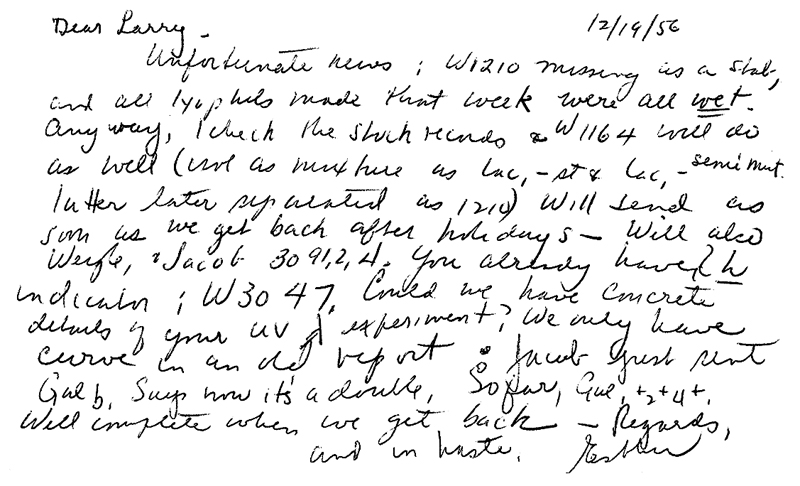 Dear Larry - 12/19/56
Unfortunate news; W1210 missing as a stab,
and all lyophils made that week were all wet.
Anyway, I check the stock records & W1164 will do
as well (isol as mixture as Lac, -st & Lac, - semi mut.
latter later separated as 1210) Will send as
soon as we get back after holidays — Will also
Weigle, & Jacob 3091,2,4. You already have h
indicator; W3047. Could we have concrete
details of your UV experiment? We only have
curve in an old report. Jacob just sent
Gal b, Says now it's a double, So far, Gal, +2+4+.
Will complete when we get back — Regards,
and in haste, Esther